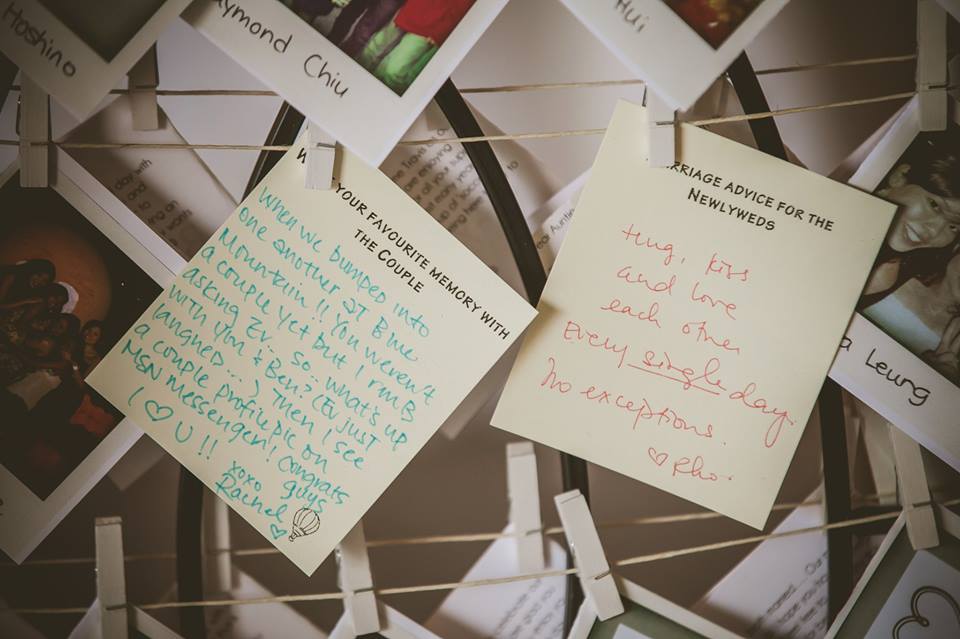 Hoshino
aymond Chiu
Hui
YOUR FAVOURITE MEMORY WITH
THE COUPLE
When we bumped into
one another at Blue
Mountain!! You weren't
a couple yet but I rmb
asking Ev.. so what's up
with you & Ben? (Ev just
laughed...) Then I see
a couple profile pic on
MSN messenger! Congrats
guys
I ♡ U !!
xoxo
Rachel
♡
RRIAGE ADVICE FOR THE
NEWLYWEDS
Hug, kiss
and love
each other
Every single day.
No exceptions.
♡ Rho.
a Leung